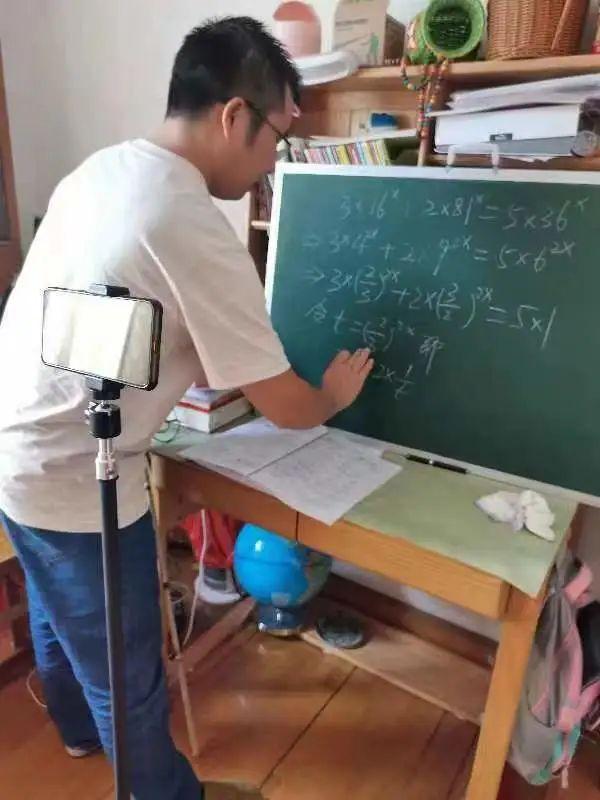 3×16ˣ + 2×81ˣ = 5×36ˣ
⇒ 3×4²ˣ + 2×9²ˣ = 5×6²ˣ
⇒ 3×(2/3)²ˣ + 2×(3/2)²ˣ = 5×1
令 t = (2/3)²ˣ 即
2×1/t